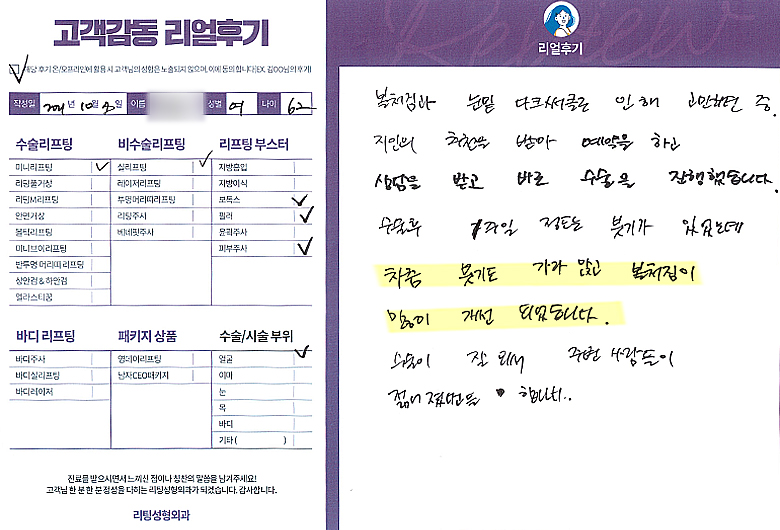 고객감동 리얼후기
해당 후기 온/오프라인에 활용 시 고객님의 성함은 노출되지 않으며, 이에 동의합니다(EX. 김OO님의 후기)
작성일 년 10월 일 이름 성별 여 나이 62
수술리프팅 비수술리프팅 리프팅 부스터
미니리프팅 실리프팅 지방흡입
리딩풀거상 레이저리프팅 지방이식
리팅M리프팅 투명머리띠리프팅 보톡스
안면거상 리팅주사 필러
울턱리프팅 베네핏주사 윤곽주사
미니브이리프팅 피부주사
반투명 머리띠 리프팅
상안검 & 하안검
엘라스티꿈
바디 리프팅 패키지 상품 수술/시술 부위
바디주사 영데이리프팅 얼굴
바디실리프팅 남자CEO패키지 이마
바디레이저 눈
목
바디
기타 ( )
진료를 받으시면서 느끼신 점이나 칭찬의 말씀을 남기주세요!
고객님 한 분 한 분 정성을 다하는 리팅성형외과가 되겠습니다. 감사합니다.
리팅성형외과
리얼후기
볼처짐과 눈밑 다크서클로 인해 고민하던 중
지인의 추천을 받아 예약을 하고
상담을 받고 바로 수술을 진행했습니다.
수술후 정도는 붓기가 있었는데
차츰 붓기도 가라 앉고 볼처짐이
많이 개선 되었습니다.
수술이 잘 되서 주변 사람들이
젊어 졌다는 합니다..